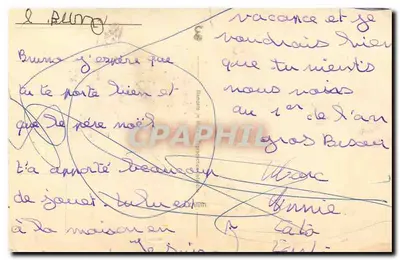 Bruno
Bruno j'espère que
tu te porte bien et
que le père noël
t'a apporté beaucoup
de jouet.
à la maison en
je suis
vacance et je
voudrais bien
que tu vients
nous voirs
au 1er de l'an
gros Baiser
Marc
Annie
CPARHIL